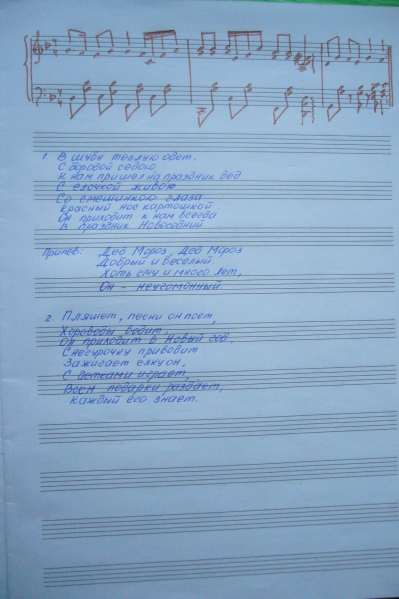 1. В шубу теплую одет.
С бородой седою
К нам пришел на праздник дед
С елочкой живою
Со смешинкою глаза
Красный нос картошкой
Он приходит к нам всегда
В праздник Новогодний
Припев: Дед Мороз, Дед Мороз
Добрый и веселый.
Хоть ему и много лет,
Он - неугомонный.
2. Пляшет, песни он поет,
Хороводы водит,
Он приходит в Новый год,
Снегурочку приводит
Зажигает елку он,
С детками играет,
Всем подарки раздает,
Каждый его знает.